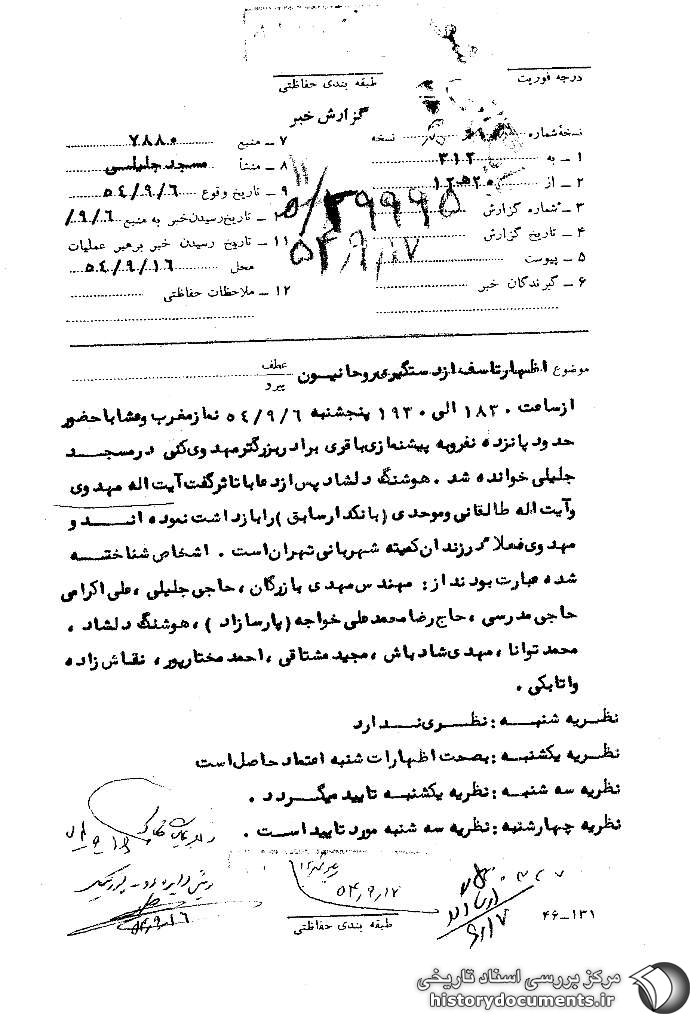 درجه فوریت
طبقه بندی حفاظتی
گزارش خبر
نسخهٔ شماره نسخه
۱ ــ به ۳۱۲
۲ ــ از ۱۲ ﻫ ۲۰
۳ ــ شماره گزارش
۴ ــ تاریخ گزارش
۵ ــ پیوست
۶ ــ گیرندگان خبر
۷ ــ منبع ۷۸۸۰
۸ ــ منشأ مسجد جلیلی
۹ ــ تاریخ وقوع ۵۴/۹/۶
تاریخ رسیدن خبر به منبع ۹/۶/
۱۱ ــ تاریخ رسیدن خبر برهبر عملیات
محل ۵۴/۹/۱۶
۱۲ ــ ملاحظات حفاظتی
۵۴/۹/۱۷
موضوع اظهار تاسف از دستگیری روحانیون عطف
پیرو
از ساعت ۱۸۳۰ الی ۱۹۳۰ پنجشنبه ۵۴/۹/۶ نماز مغرب و عشا با حضور
حدود پانزده نفر و به پیشنمازی باقری برادر بزرگتر مهدوی کنی در مسجد
جلیلی خوانده شد . هوشنگ دلشاد پس از دعا با تاثر گفت آیت اله مهدوی
و آیت اله طالقانی و موحدی ( بانکدار سابق ) را بازداشت نموده اند و
مهدوی فعلا در زندان کمیته شهربانی تهران است . اشخاص شناخته
شده عبارت بودند از : مهندس مهدی بازرگان ، حاجی جلیلی ، علی اکرامی
حاجی مدرسی ، حاج رضا محمد علی خواجه ( پارسازاد ) ، هوشنگ دلشاد ،
محمد توانا ، مهدی شادباش ، مجید مشتاقی ، احمد مختارپور ، نقاش زاده
و اتابکی .
نظریه شنبه : نظری ندارد
نظریه یکشنبه : بصحت اظهارات شنبه اعتماد حاصل است
نظریه سه شنبه : نظریه یکشنبه تایید میگردد .
نظریه چهارشنبه : نظریه سه شنبه مورد تایید است .
۵۴/۹/۱۷
۵۴/۹/۱۶
طبقه بندی حفاظتی
۹/۱۷
۴۶ــ۱۳۱
مرکز بررسی اسناد تاریخی
historydocuments.ir